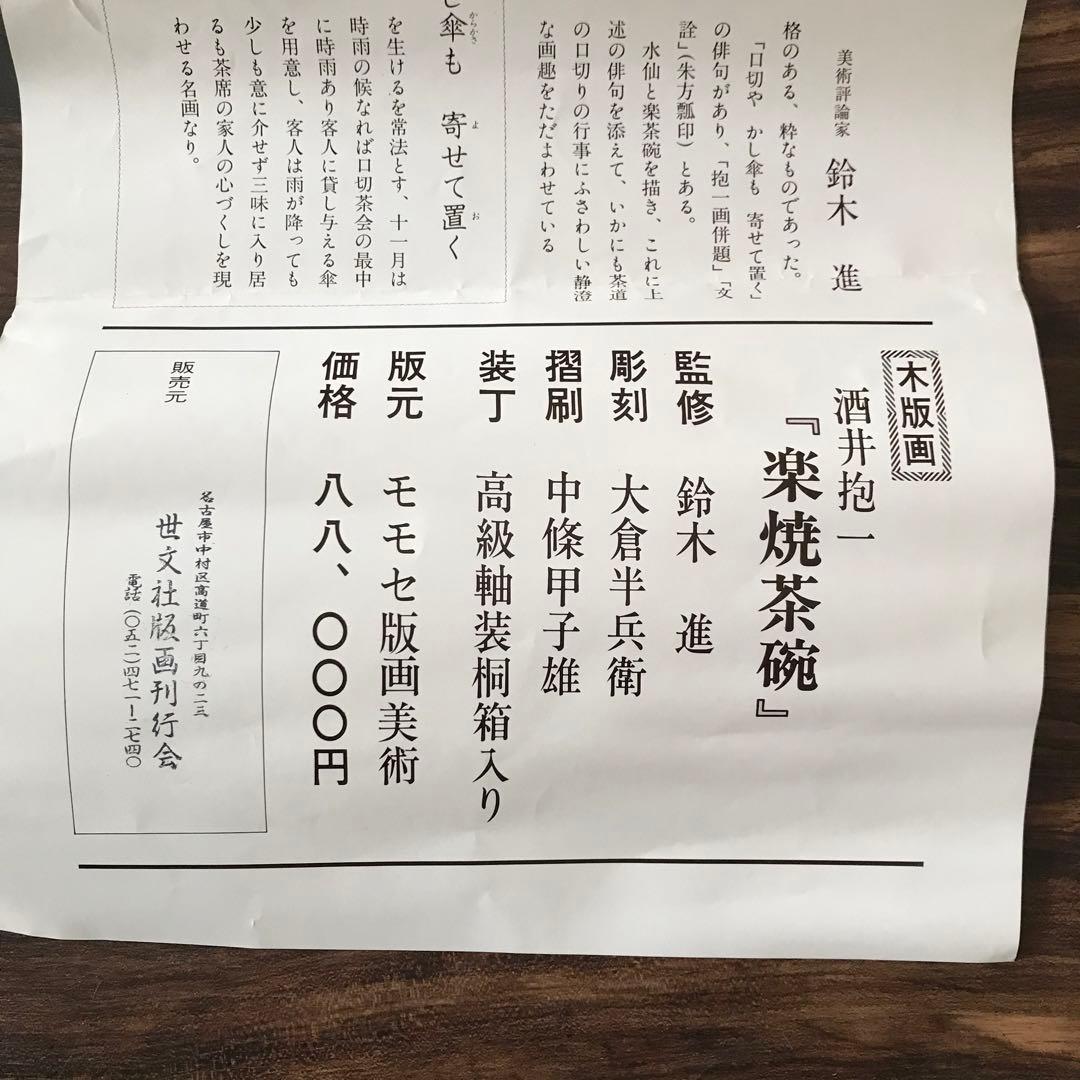 美術評論家 鈴木 進
格のある、粋なものであった。
「口切や かし傘も 寄せて置く」
の俳句があり、「抱一画併題」「文
詮」(朱方瓢印)とある。
水仙と楽茶碗を描き、これに上
述の俳句を添えて、いかにも茶道
の口切りの行事にふさわしい静澄
な画趣をただよわせている
し傘も 寄せて置く
からかさ よ お
を生けるを常法とす、十一月は
時雨の候なれば口切茶会の最中
に時雨あり客人に貸し与える傘
を用意し、客人は雨が降っても
少しも意に介せず三味に入り居
るも茶席の家人の心づくしを現
わせる名画なり。
木版画
酒井抱一
『楽焼茶碗』
監修 鈴木 進
彫刻 大倉半兵衛
摺刷 中條甲子雄
装丁 高級軸装桐箱入り
版元 モモセ版画美術
価格 八八、〇〇〇円
販売元
名古屋市中村区高道町六丁目九の二三
世文社版画刊行会
電話(〇五二)四七一ー二七四〇